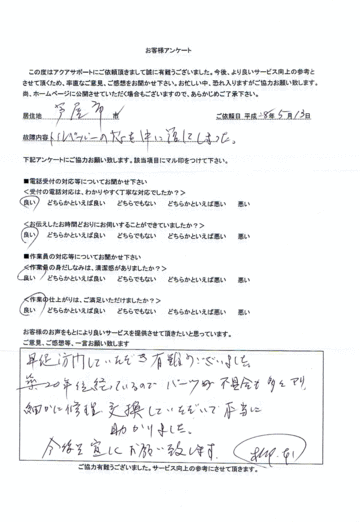 お客様アンケート
この度はアクアサポートにご依頼頂きまして誠に有難うございました。今後、より良いサービス向上の参考と
させて頂くため、率直なご意見、ご感想をお聞かせ下さい。お忙しい中、恐れ入りますがご協力お願い致します。
尚、ホームページに公開させていただく場合もございますので、あらかじめご了承下さい。
居住地 芦屋市 市 ご依頼日 平成 28年5月13日
故障内容 トイレットペーパーの
下記アンケートにご協力お願い致します。該当項目にマル印をつけて下さい。
■電話受付の対応等についてお聞かせ下さい
<受付の電話対応は、わかりやすく丁寧な対応でしたか?>
良い どちらかといえば良い どちらでもない どちらかといえば悪い 悪い
<お伝えしたお時間どおりにお伺いすることができていましたか?>
良い どちらかといえば良い どちらでもない どちらかといえば悪い 悪い
■作業員の対応等についてお聞かせ下さい
<作業員の身だしなみは、清潔感がありましたか?>
良い どちらかといえば良い どちらでもない どちらかといえば悪い 悪い
<作業の仕上がりは、ご満足いただけましたか?>
良い どちらかといえば良い どちらでもない どちらかといえば悪い 悪い
お客様のお声をもとにより良いサービスを提供させて頂きたいと思っています。
ご意見、ご感想等、一言お願い致します
早速訪問していただき有難うございました。
築20年位経っているので パーツの不具合も多々あり
細かに修理 交換していただいて 本当に
助かりました。
今後も宜しくお願い致します。
ご協力有難うございました。サービス向上の参考にさせて頂きます。